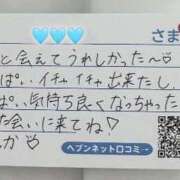 さま
と会えてうれしかった〜♡
ぱい、イチャイチャ出来たし、
ぱい気持ち良くなっちゃった
た会いに来てね♡
か♡
ヘブンネット口コミ